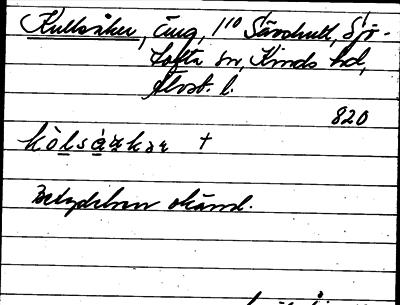 Kullsåker, äng, 1/10 Sävshult, Sjö-
tofta sn, Kinds hd,
Älvsb. l.
820
kòlsá̱rkar +
Betydelsen okänd.